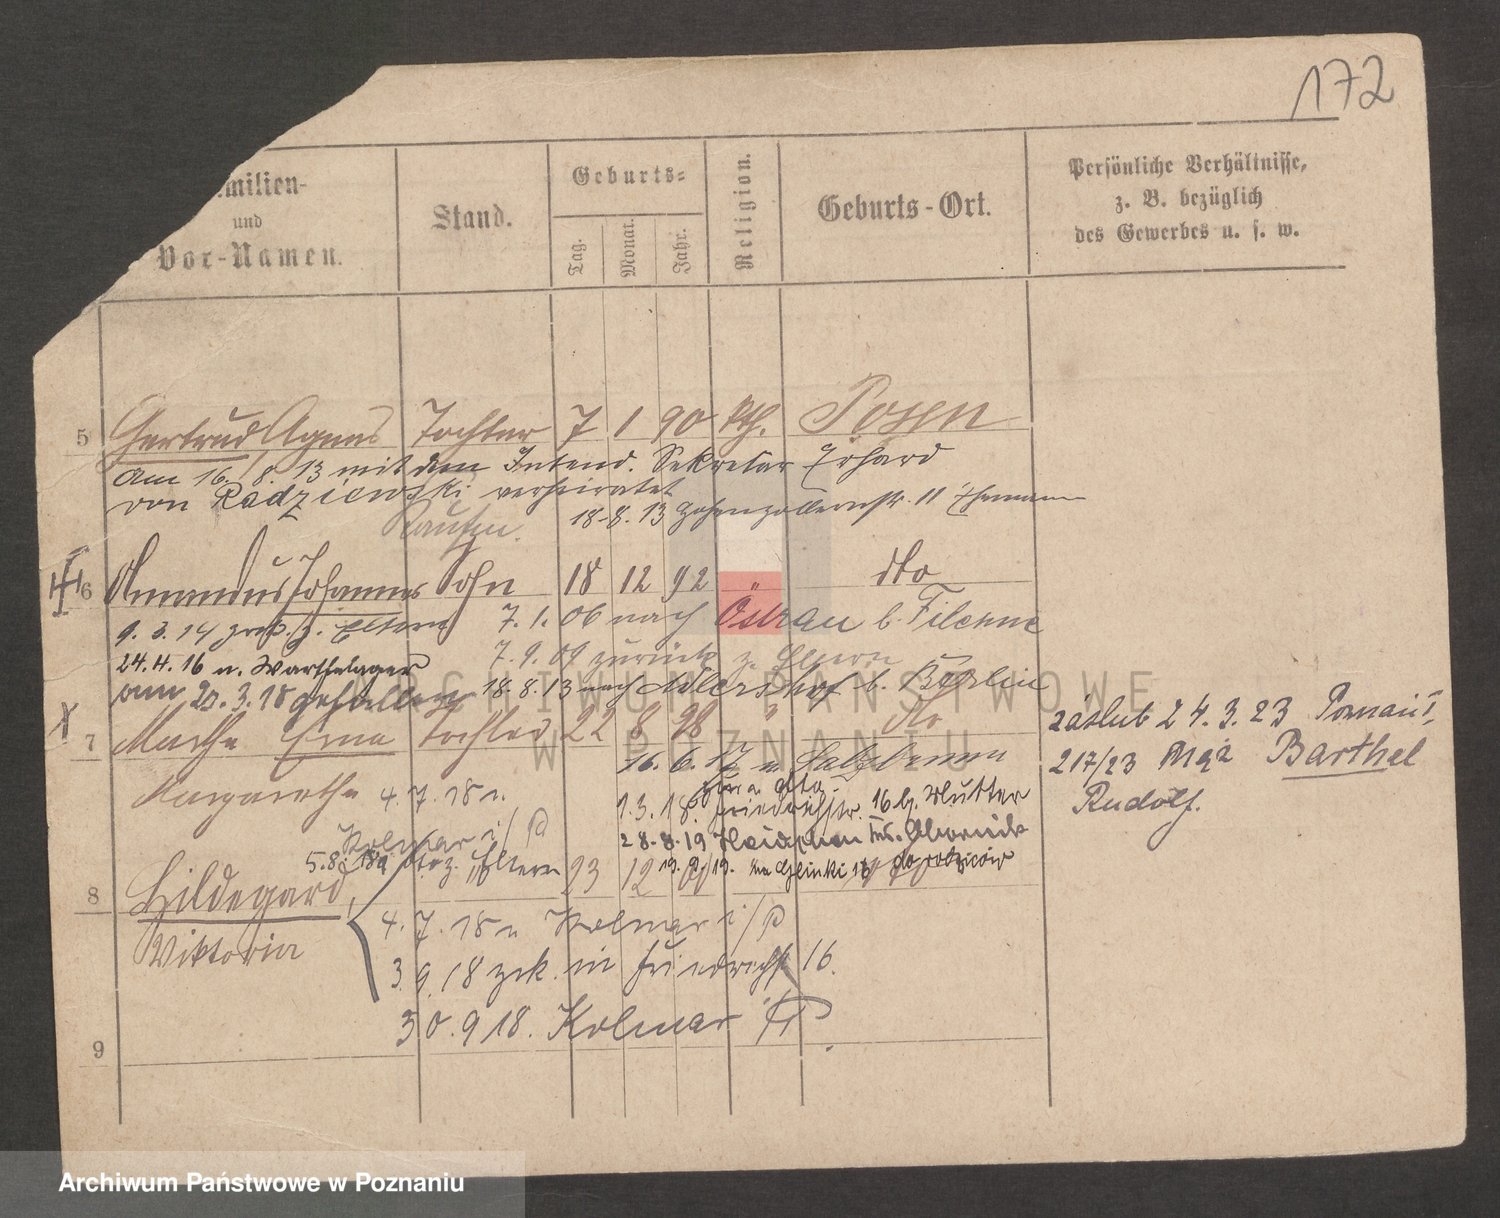 172
milien-
und
Vor-Namen.
Stand.
Geburts-
Tag.
Monat.
Jahr.
Religion.
Geburts-Ort.
Persönliche Verhältnisse,
z. B. bezüglich
des Gewerbes u. s. w.
5 Gertrud, Agnes Tochter 7 1 90 kth. Posen
am 16. 8. 13 mit dem Intend. Sekretär Erhard
von Radziewski verheiratet
18.8.13 Hohenzollernstr. 11 Ehemann
Kaufm.
6 Amandus Johannes Sohn 18 12 92 " dto
9. 3. 14 zrck. z. Eltern 7. 1. 06 nach Ostrau b. Filehne
24.4.16 n. Warthelager 7. 9. 09 zurück z. Eltern
am 3. 18 gefallen 18. 8. 13 nach Adlershof b. Berlin
7 Martha Erna Tochter 22 8 98 " dto
Margarethe 4. 7. 18 n.
Kolmar i/P
16. 6. 17 n. Salzbrunn
1. 3. 18. Friedrichstr. 16 b. Mutter
28.8.19 Obornik
do rodziców
zaślub 24. 3. 23 Poznań I,
217/23 Mąż Barthel
Rudolf.
5.8. 18 z. Eltern
8 Hildegard, 23 12
Viktoria
4. 7. 18 n Kolmar i/P
3. 9. 18 zrk. in Friedrichst 16.
30. 9 18. Kolmar i/P
9
ARCHIWUM PAŃSTWOWE
W POZNANIU
Archiwum Państwowe w Poznaniu